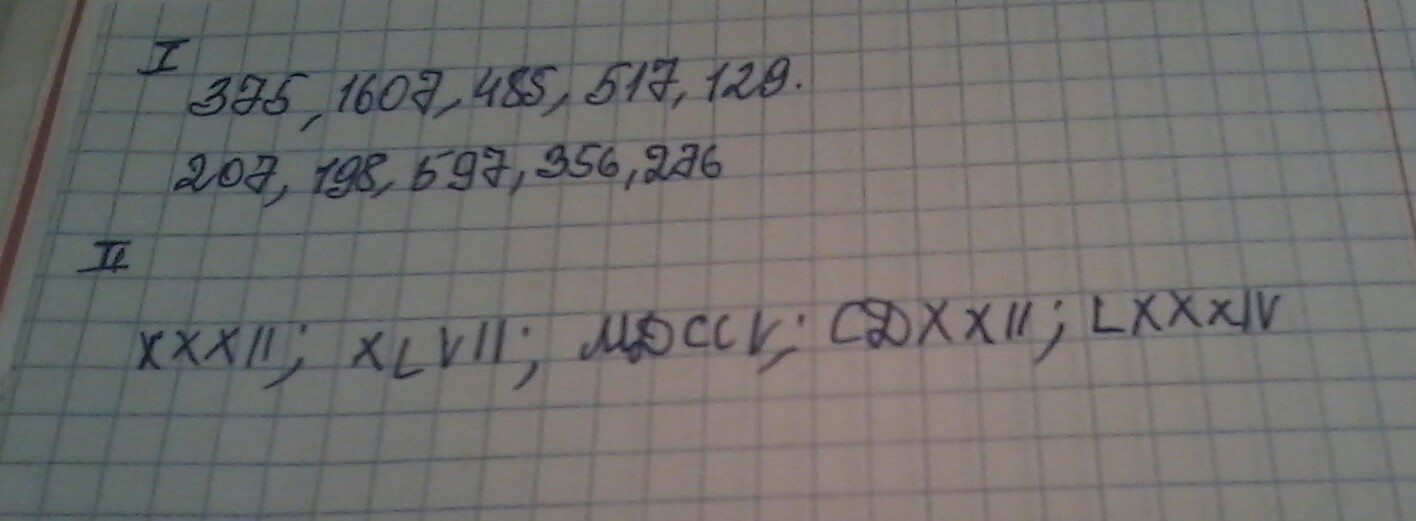 I
375, 1607, 485, 517, 129.
207, 198, 597, 356, 276
II
XXXII; XLVII; MDCCV; CDXXII; LXXXIV